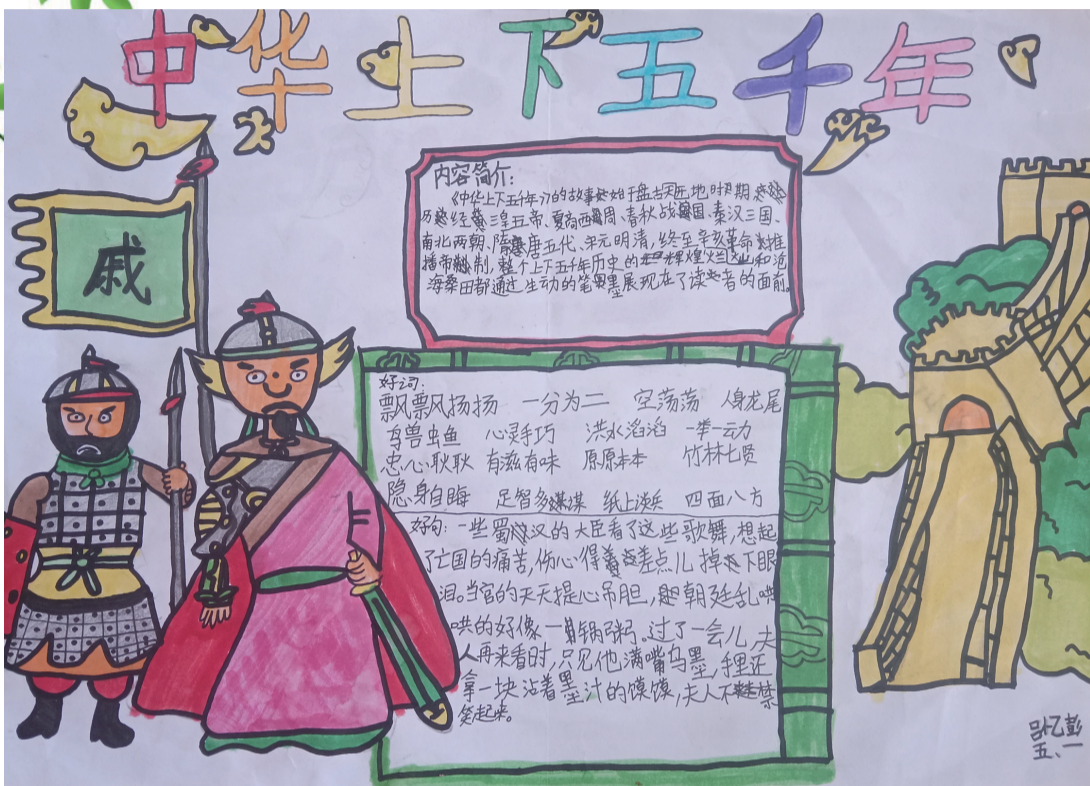 中华上下五千年
戚
内容简介：
《中华上下五千年》的故事始于盘古天地时期
历经三皇五帝、夏商西周、春秋战国、秦汉三国、
南北两朝、隋唐五代、宋元明清，终至辛亥革命推
播帝制，整个上下五千年历史的辉煌灿烂和沧
海桑田都通过生动的笔墨展现在了读者的面前。
好词：
飘飘扬扬 一分为二 空荡荡 人身龙尾
鸟兽虫鱼 心灵手巧 洪水滔滔 一举一动
忠心耿耿 有滋有味 原原本本 竹林七贤
隐身自晦 足智多谋 纸上谈兵 四面八方
好句：一些蜀汉的大臣看了这些歌舞，想起
了亡国的痛苦，伤心得差点儿掉下眼
泪。当官的天天提心吊胆，朝廷乱哄
哄的好像一锅粥。过了一会儿，夫
人再来看时，只见他满嘴乌墨，手里还
拿一块沾着墨汁的馍馍，夫人不禁
笑起来。
五、一